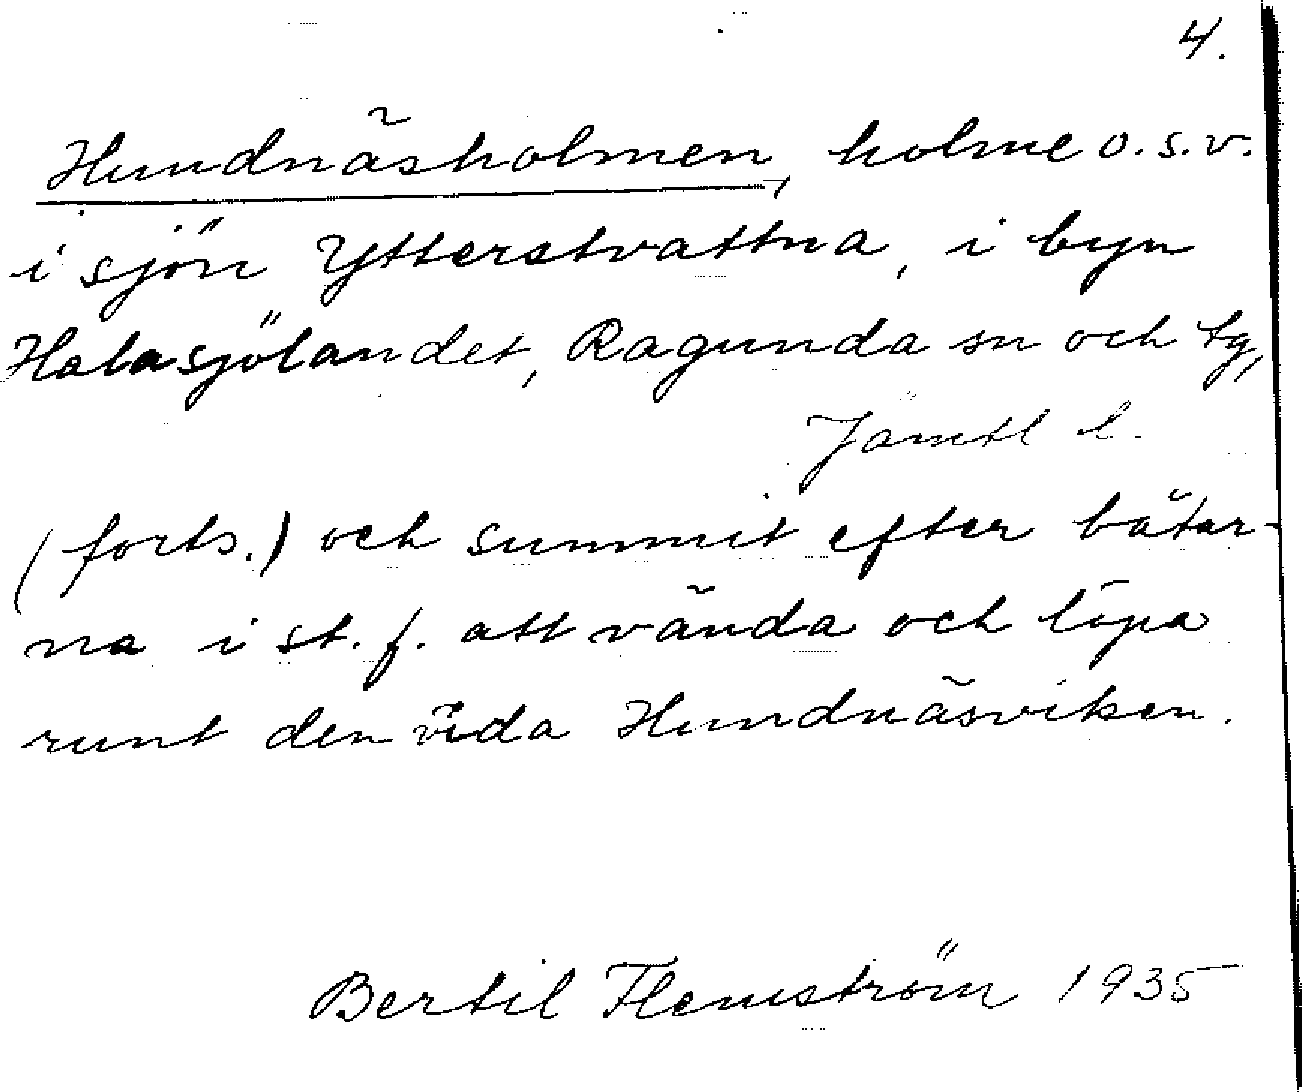 4.
Hundnäsholmen, holme o.s.v.
i sjön Ytterstvattna, i byn
Halasjölandet, Ragunda sn och tg,
Jämtl l.
(forts.) och summit efter båtar-
na i st. f. att vända och löpa
runt den vida Hundnäsviken.
Bertil Flemström 1935